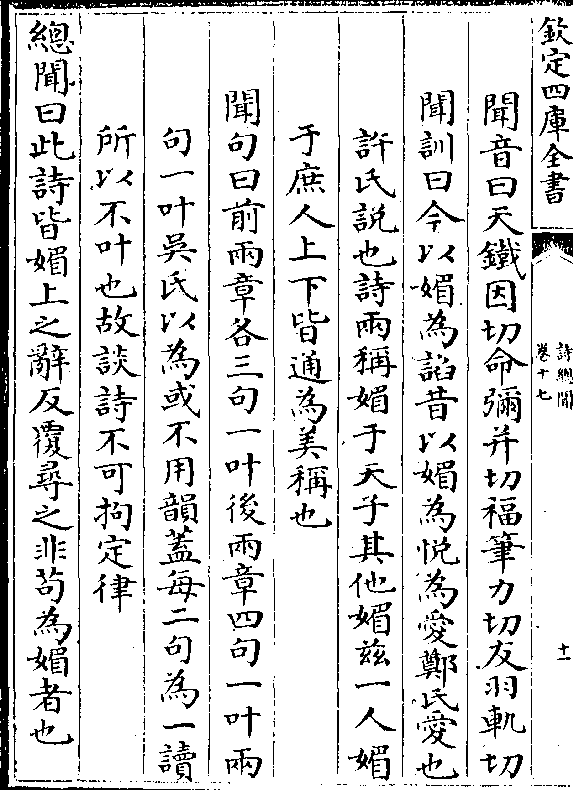 欽定四庫全書
詩總聞
卷十七
十一
聞音曰天鐵因切命彌并切福筆力切友羽軌切
聞訓曰今以媚為諂昔以媚為悦為愛鄭氏愛也
許氏説也詩兩稱媚于天子其他媚兹一人媚
于庶人上下皆通為美稱也
聞句曰前兩章各三句一叶後兩章四句一叶兩
句一叶吳氏以為或不用韻蓋每二句為一讀
所以不叶也故談詩不可拘定律
總聞曰此詩皆媚上之辭反覆尋之非苟為媚者也